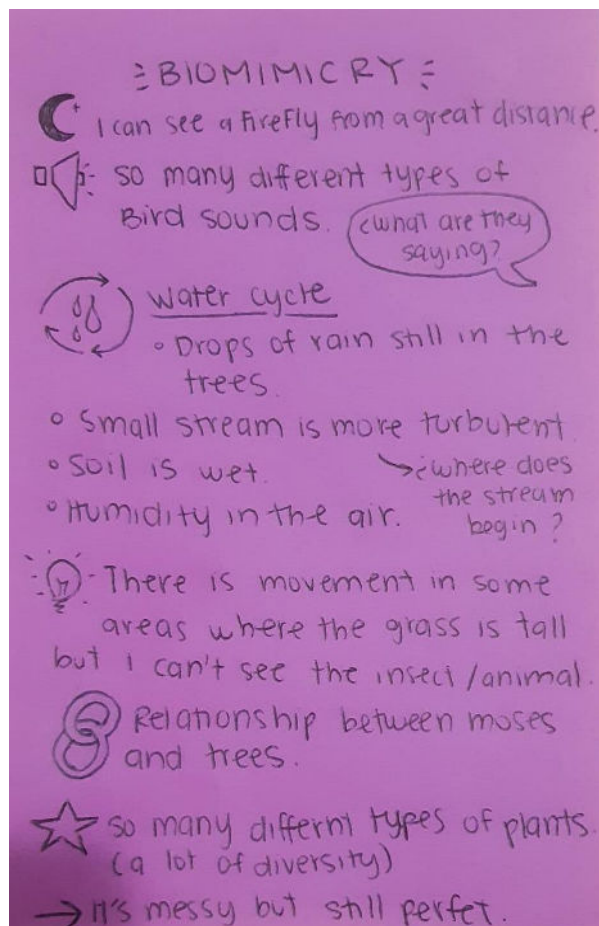 BIOMIMICRY
I can see a firefly from a great distance.
so many different types of
Bird sounds.
¿what are they
saying?
water cycle
Drops of rain still in the
trees.
Small stream is more turbulent.
Soil is wet.
¿where does
the stream
begin?
Humidity in the air.
There is movement in some
areas where the grass is tall
but i can't see the insect/animal.
Relationship between moses
and trees.
so many differnt types of plants.
(a lot of diversity)
→ it's messy but still perfet.